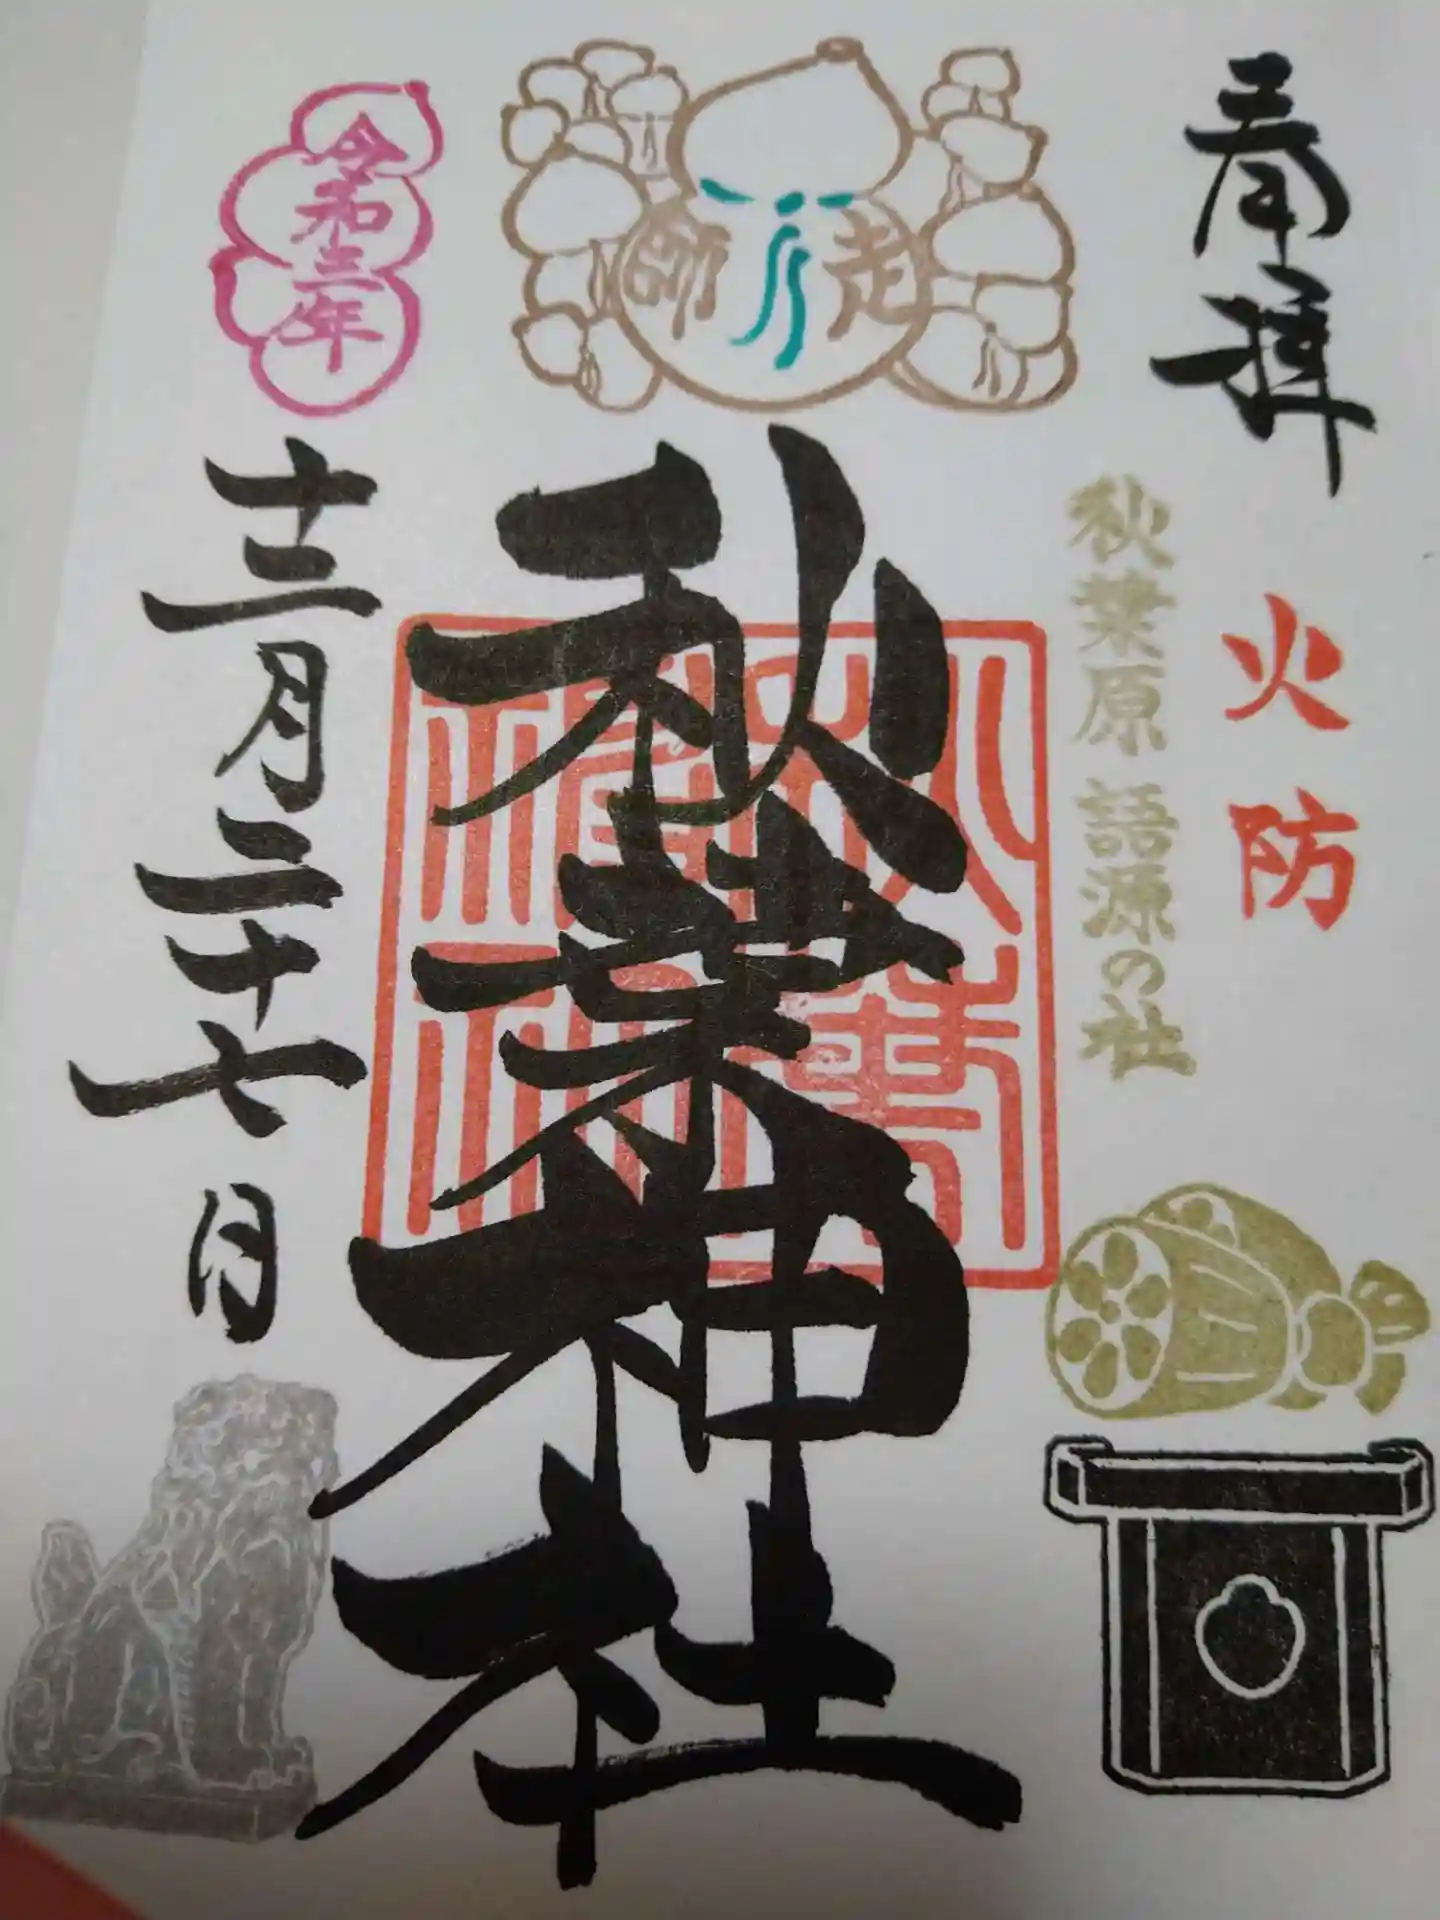 奉拝
火防
秋葉原 語源の社
師走
秋葉神社
秋葉神社
令和三年
十二月二十七日